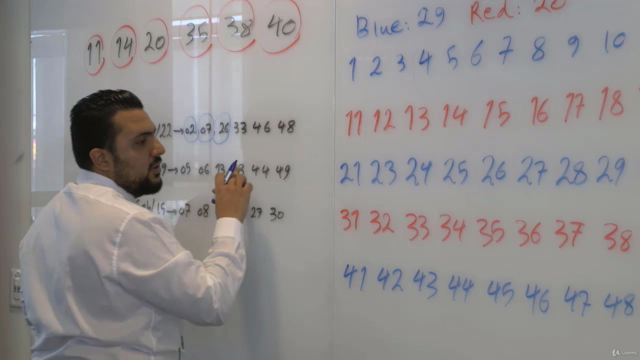 11 14 20 35 38 40
/22→02 07 20 33 46 48
9→05 06 13 44 49
/15→07 08 27 30
Blue: 29 Red: 20
1 2 3 4 5 6 7 8 9 10
11 12 13 14 15 16 17 18
21 23 24 25 26 27 28 29
31 32 33 34 35 36 37 38
41 42 43 44 45 46 47 48